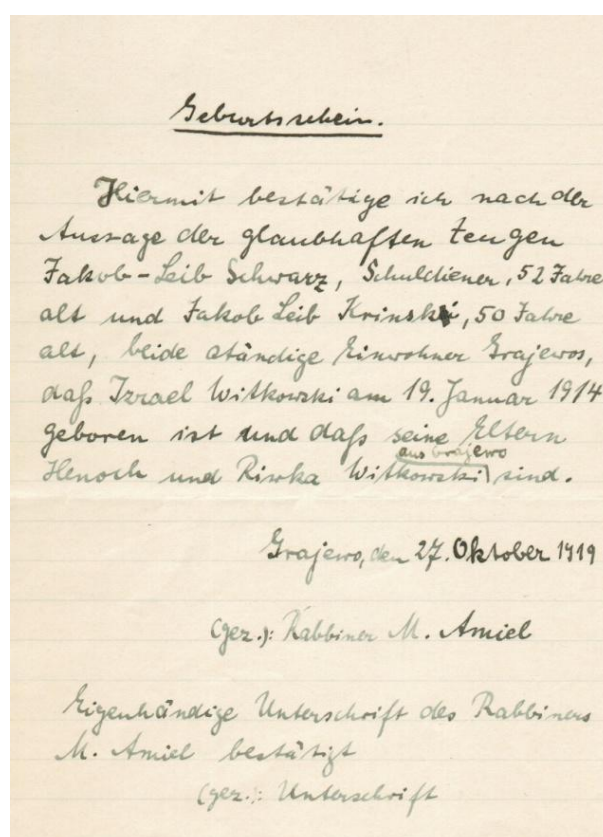 Geburtsschein.
Hiermit bestätige ich nach der
Aussage der glaubhaften Zeugen
Jakob-Leib Schwarz, Schuldiener, 52 Jahre
alt und Jakob Leib Krinski, 50 Jahre
alt, beide ständige Einwohner Grajewos,
daß Izrael Witkowski am 19. Januar 1914
geboren ist und daß seine Eltern
aus Grajewo
Henoch und Riwka Witkowski sind.
Grajewo, den 27. Oktober 1919
(gez.): Rabbiner M. Amiel
Eigenhändige Unterschrift des Rabbiners
M. Amiel bestätigt
(gez.): Unterschrift